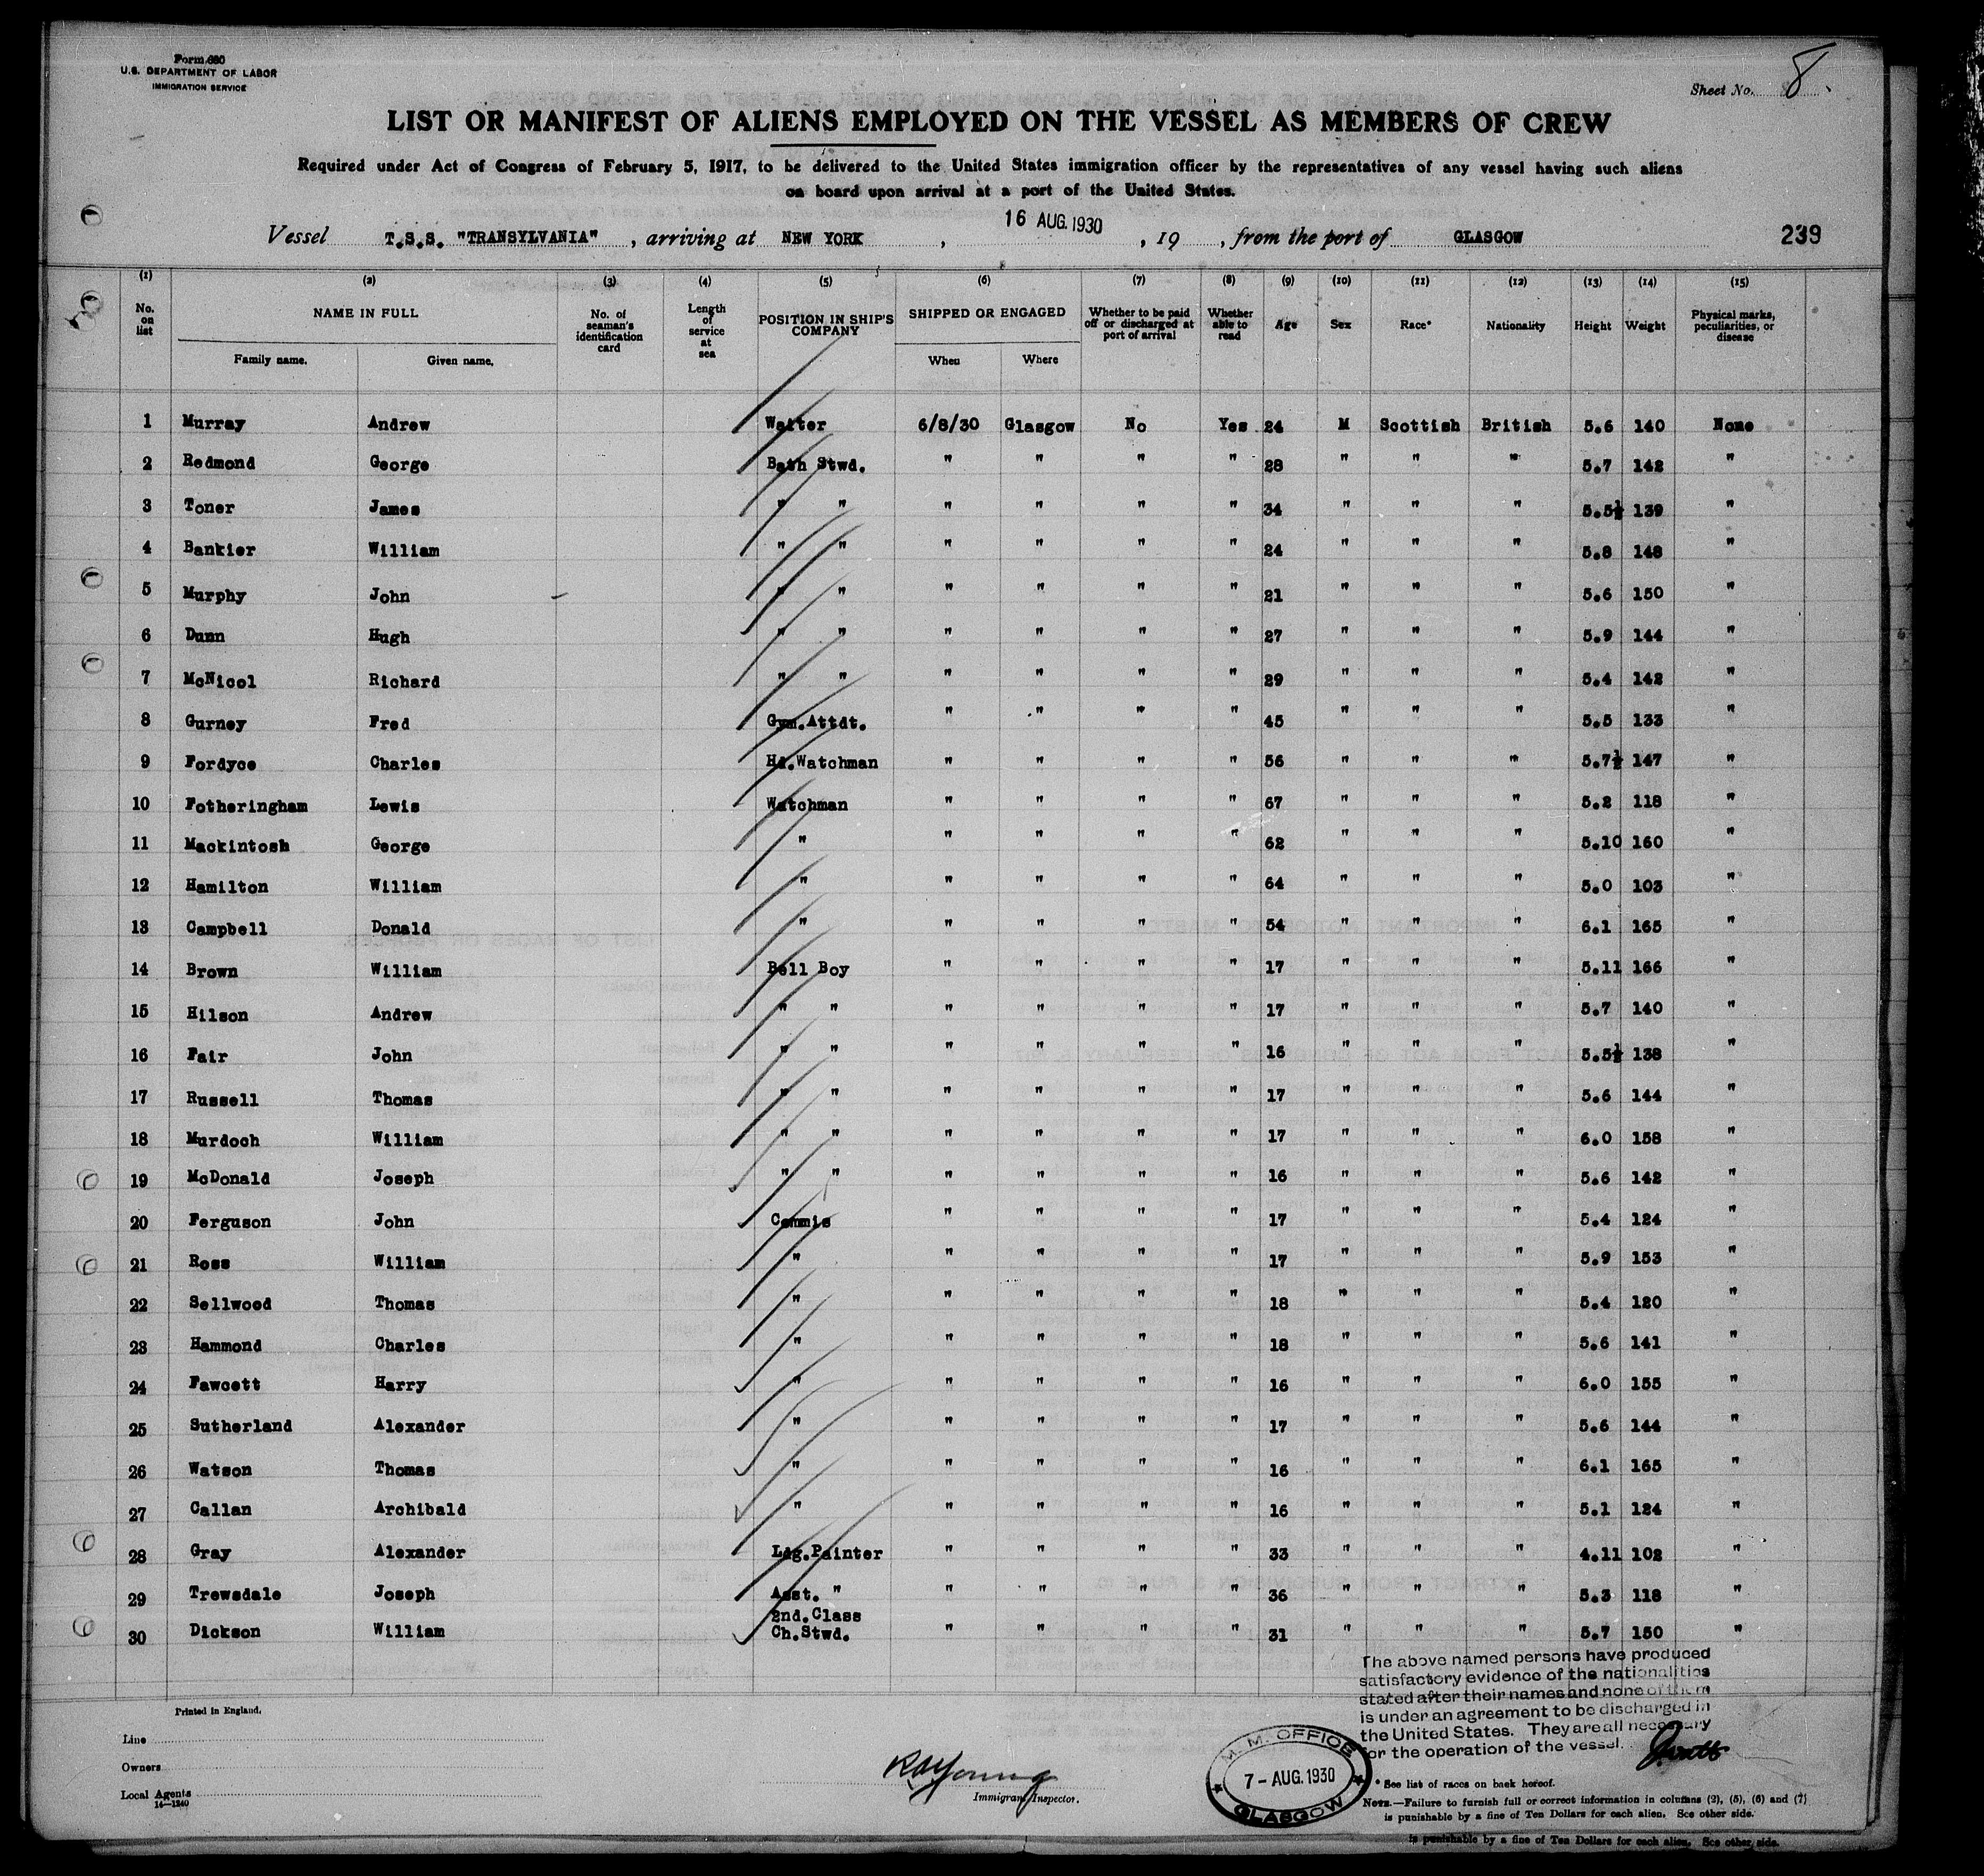 Form 680
U.S. DEPARTMENT OF LABOR
IMMIGRATION SERVICE
Sheet No. 8
LIST OR MANIFEST OF ALIENS EMPLOYED ON THE VESSEL AS MEMBERS OF CREW
Required under Act of Congress of February 5, 1917, to be delivered to the United States immigration officer by the representatives of any vessel having such aliens
on board upon arrival at a port of the United States.
Vessel T.S.S. "TRANSYLVANIA", arriving at NEW YORK, 16 AUG. 1930, 19 , from the port of GLASGOW 239
(1) (2) (3) (4) (5) (6) (7) (8) (9) (10) (11) (12) (13) (14) (15)
No. on list NAME IN FULL Family name. Given name. No. of seaman's identification card Length of service at sea POSITION IN SHIP'S COMPANY SHIPPED OR ENGAGED When Where Whether to be paid off or discharged at port of arrival Whether able to read Age Sex Race* Nationality Height Weight Physical marks, peculiarities, or disease
1 Murray Andrew Waiter 6/8/30 Glasgow No Yes 24 M Scottish British 5.6 140 None
2 Redmond George Bath Stwd. " " " " 28 " " " 5.7 142 "
3 Toner James " " " " " " 34 " " " 5.5½ 139 "
4 Bankier William " " " " " " 24 " " " 5.8 148 "
5 Murphy John " " " " " " 21 " " " 5.6 150 "
6 Dunn Hugh " " " " " " 27 " " " 5.9 144 "
7 McNicol Richard " " " " " " 29 " " " 5.4 142 "
8 Gurney Fred Gym.Attdt. " " " " 45 " " " 5.5 133 "
9 Fordyce Charles Hd.Watchman " " " " 56 " " " 5.7½ 147 "
10 Fotheringham Lewis Watchman " " " " 67 " " " 5.2 118 "
11 Mackintosh George " " " " " 62 " " " 5.10 160 "
12 Hamilton William " " " " " 64 " " " 5.0 103 "
13 Campbell Donald " " " " " 54 " " " 6.1 165 "
14 Brown William Bell Boy " " " " 17 " " " 5.11 166 "
15 Hilson Andrew " " " " " " 17 " " " 5.7 140 "
16 Fair John " " " " " " 16 " " " 5.5½ 138 "
17 Russell Thomas " " " " " " 17 " " " 5.6 144 "
18 Murdoch William " " " " " " 17 " " " 6.0 158 "
19 McDonald Joseph " " " " " " 16 " " " 5.6 142 "
20 Ferguson John Commis " " " " 17 " " " 5.4 124 "
21 Ross William " " " " " 17 " " " 5.9 153 "
22 Sellwood Thomas " " " " " 18 " " " 5.4 120 "
23 Hammond Charles " " " " " 18 " " " 5.6 141 "
24 Fawcett Harry " " " " " 16 " " " 6.0 155 "
25 Sutherland Alexander " " " " " 17 " " " 5.6 144 "
26 Watson Thomas " " " " " 16 " " " 6.1 165 "
27 Callan Archibald " " " " " 16 " " " 5.1 124 "
28 Gray Alexander Ldg.Painter " " " " 33 " " " 4.11 102 "
29 Trewsdale Joseph Asst. " " " " " 36 " " " 5.3 118 "
2nd.Class
30 Dickson William Ch.Stwd. " " " " 31 " " " 5.7 150 "
The above named persons have produced
satisfactory evidence of the nationalities
stated after their names and none of them
is under an agreement to be discharged in
the United States. They are all necessary
for the operation of the vessel.
Printed in England.
Line
Owners
Local Agents
14—1240
Immigrant Inspector.
M. M. OFFICE
7 - AUG. 1930
GLASGOW
* See list of races on back hereof.
NOTE.—Failure to furnish full or correct information in columns (2), (5), (6) and (7)
is punishable by a fine of Ten Dollars for each alien. See other side.
is punishable by a fine of Ten Dollars for each alien. See other side.